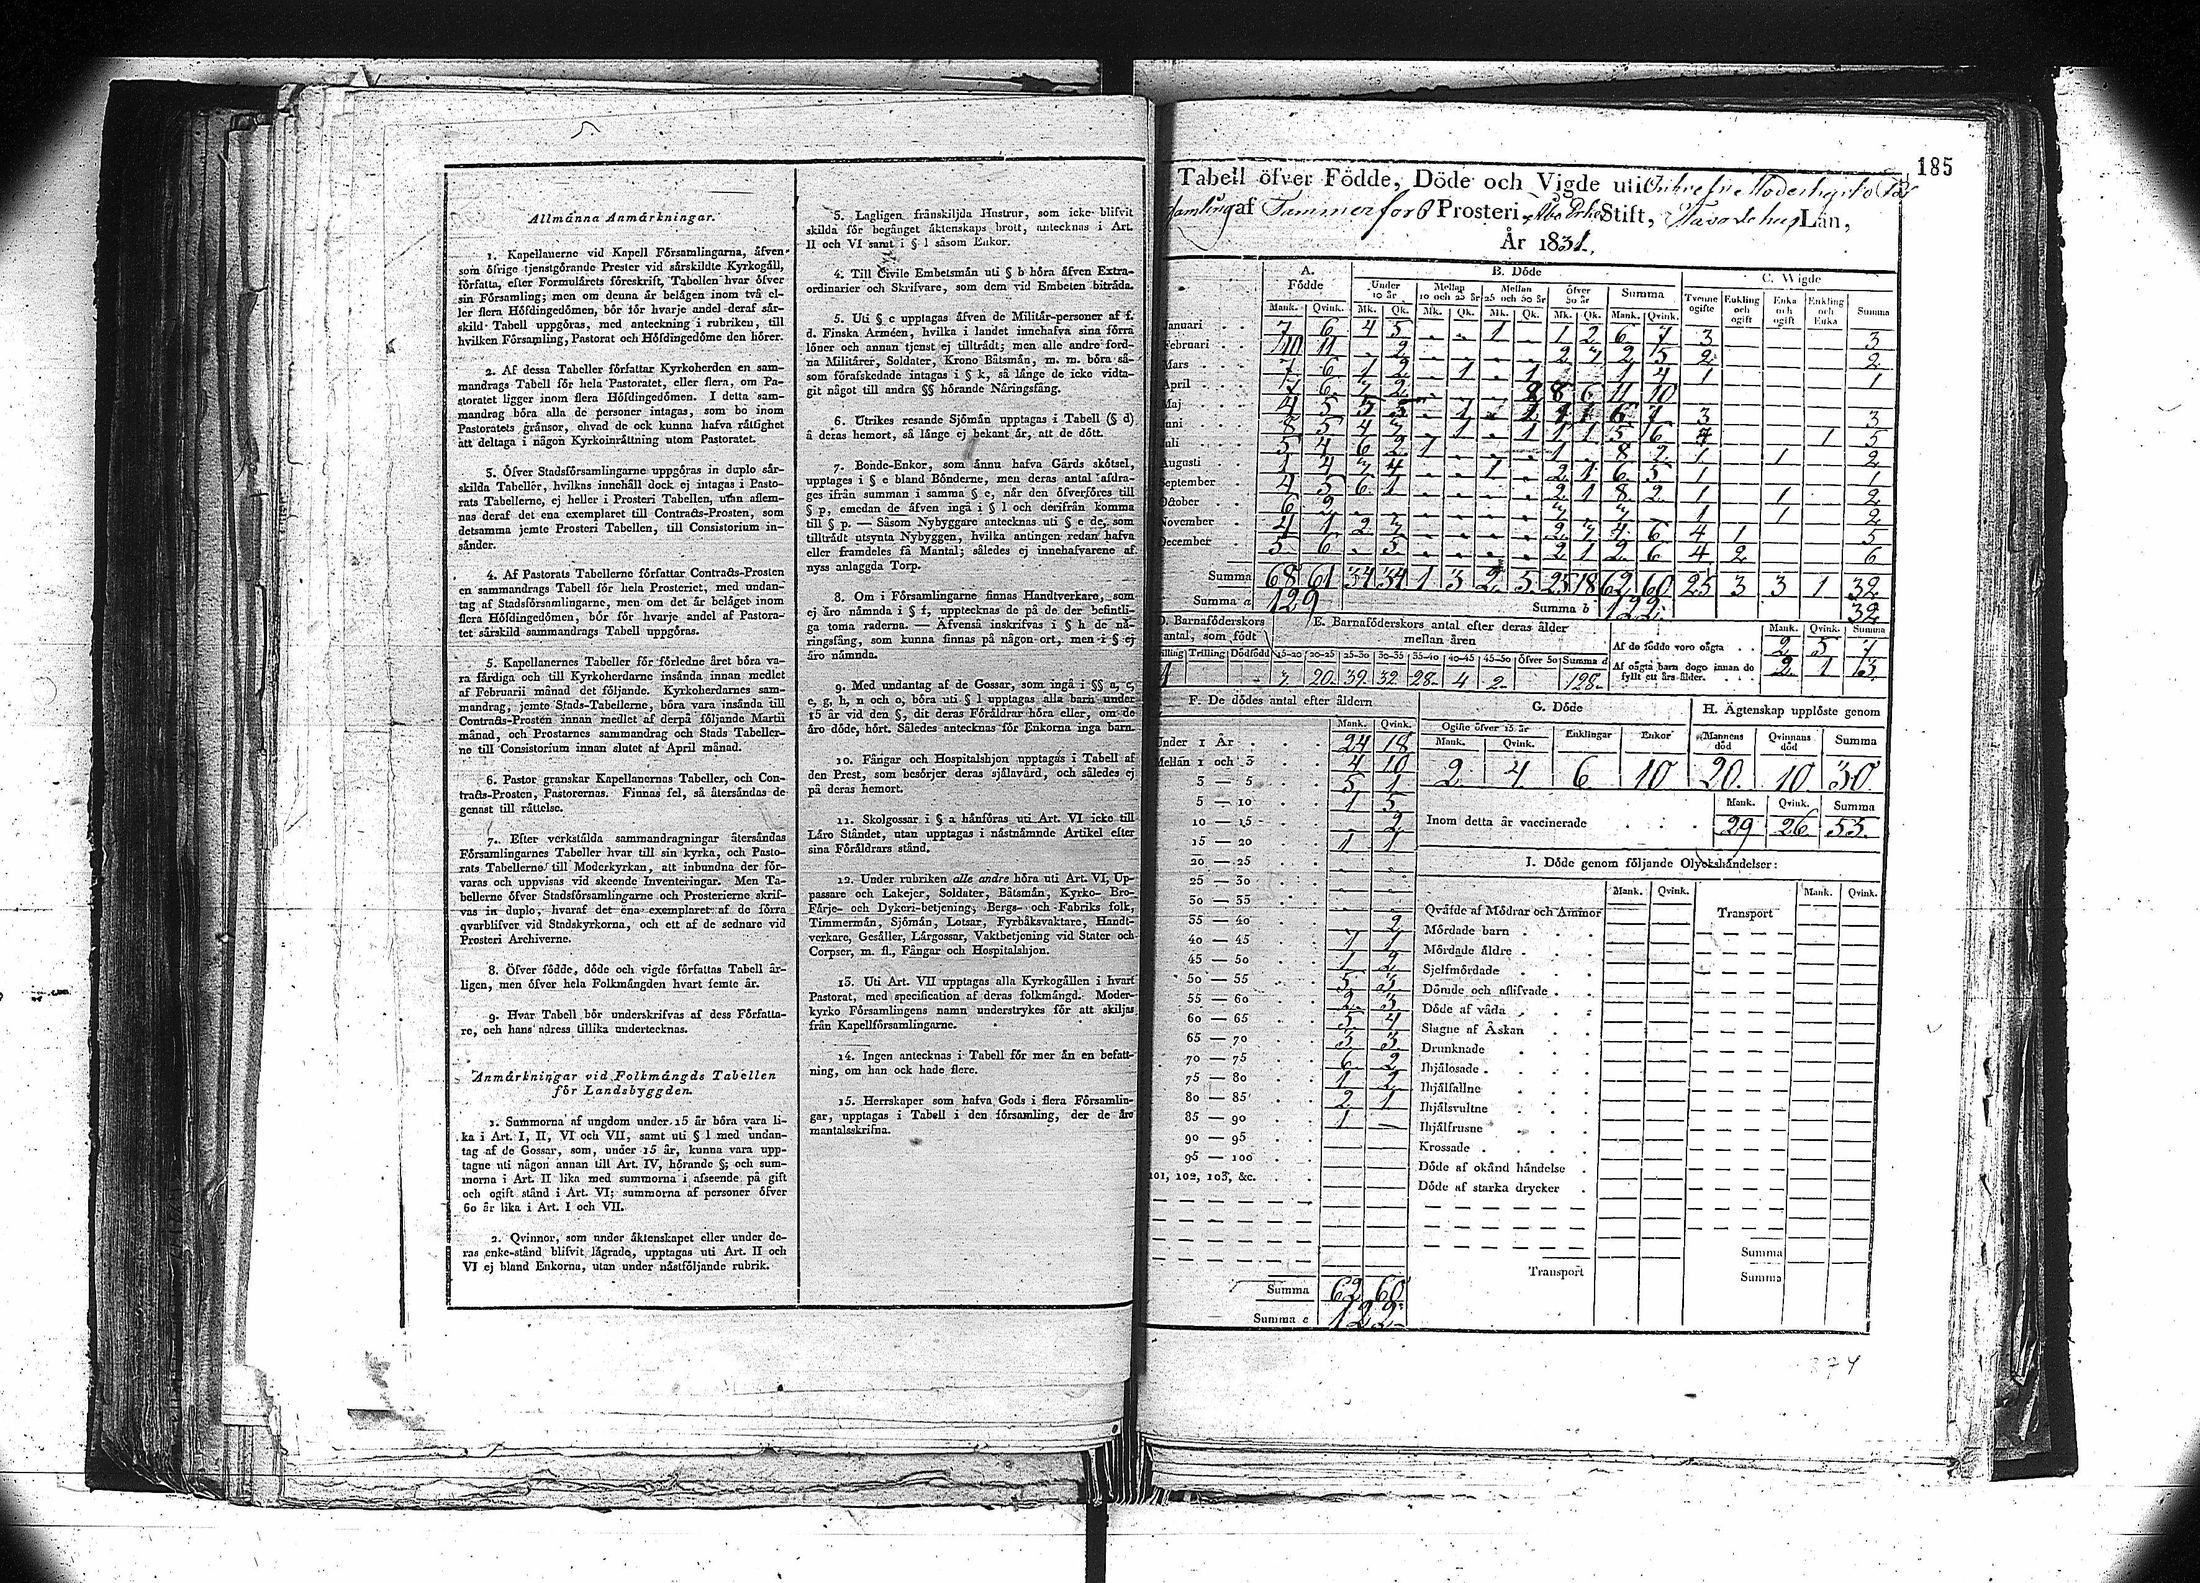 Allmänna Anmärkningar.
1. Kapellanerne vid Kapell Församlingarna, äfven
som öfrige tjenstgörande Prester vid särskildte Kyrkogäll,
författa, efter Formulärets föreskrift, Tabellen hvar öfver
sin Församling; men om denna är belägen inom två el-
ler flera Höfdingedömen, bör för hvarje andel deraf sär-
skild Tabell uppgöras, med anteckning i rubriken, till
hvilken Församling, Pastorat och Höfdingedöme den hörer.
2. Af dessa Tabeller författar Kyrkoherden en sam-
mandrags Tabell för hela Pastoratet, eller flera, om Pa-
storatet ligger inom flera Höfdingedömen. I detta sam-
mandrag böra alla de personer intagas, som bo inom
Pastoratets gränsor, ehvad de ock kunna hafva rättighet
att deltaga i någon Kyrkoinrättning utom Pastoratet.
3. Öfver Stadsförsamlingarne uppgöras in duplo sär-
skilda Tabeller, hvilkas innehåll dock ej intagas i Pasto-
rats Tabellerne, ej heller i Prosteri Tabellen, utan aflem-
nas deraf det ena exemplaret till Contracts-Prosten, som
detsamma jemte Prosteri Tabellen, till Consistorium in-
sänder.
4. Af Pastorats Tabellerne författar Contracts-Prosten
en sammandrags Tabell för hela Prosteriet, med undan-
tag af Stadsförsamlingarne, men om det är beläget inom
flera Höfdingedömen, bör för hvarje andel af Pastora-
tet särskild sammandrags Tabell uppgöras.
5. Kapellanernes Tabeller för förledne året böra va-
ra färdiga och till Kyrkoherdarne insända innan medlet
af Februarii månad det följande. Kyrkoherdarnes sam-
mandrag, jemte Stads-Tabellerne, böra vara insända till
Contracts-Prosten innan medlet af derpå följande Martii
månad, och Prostarnes sammandrag och Stads Tabeller-
ne till Consistorium innan slutet af April månad.
6. Pastor granskar Kapellanernas Tabeller, och Con-
tracts-Prosten, Pastorernas. Finnas fel, så återsändas de
genast till rättelse.
7. Efter verkställda sammandragningar återsändas
Församlingarnes Tabeller hvar till sin kyrka, och Pasto-
rats Tabellerne till Moderkyrkan, att inbundna der för-
varas och uppvisas vid skeende Inventeringar. Men Ta-
bellerne öfver Stadsförsamlingarne och Prosterierne skrif-
vas in duplo, hvaraf det ena exemplaret af de förra
qvarblifver vid Stadskyrkorna, och ett af de sednare vid
Prosteri Archiverne.
8. Öfver födde, döde och vigde författas Tabell är-
ligen, men öfver hela Folkmängden hvart femte år.
9. Hvar Tabell bör underskrifvas af dess Författa-
re, och hans adress tillika undertecknas.
Anmärkningar vid Folkmängds Tabellen
för Landsbyggden.
1. Summorna af ungdom under 15 år böra vara li-
ka i Art. I, II, VI och VII, samt uti § l med undan-
tag af de Gossar, som, under 15 år, kunna vara upp-
tagne uti någon annan till Art. IV, hörande §; och sum-
morna i Art. II lika med summorna i afseende på gift
och ogift stånd i Art. VI; summorna af personer öfver
60 år lika i Art. I och VII.
2. Qvinnor, som under äktenskapet eller under de-
ras enke-stånd blifvit lägrade, upptagas uti Art. II och
VI ej bland Enkorna, utan under nästföljande rubrik.
3. Lagligen frånskiljda Hustrur, som icke blifvit
skilda för begånget äktenskaps brott, antecknas i Art.
II och VI samt i § l såsom Enkor.
4. Till Civile Embetsmän uti § b höra äfven Extra-
ordinarier och Skrifvare, som dem vid Embeten biträda.
5. Uti § c upptagas äfven de Militär-personer af f.
d. Finska Arméen, hvilka i landet innehafva sina förra
löner och annan tjenst ej tillträdt; men alle andre ford-
na Militärer, Soldater, Krono Båtsmän, m. m. böra så-
som förafskedade intagas i § k, så länge de icke vidta-
git något till andra §§ hörande Näringsfång.
6. Utrikes resande Sjömän upptagas i Tabell (§ d)
å deras hemort, så länge ej bekant är, att de dött.
7. Bonde-Enkor, som ännu hafva Gårds skötsel,
upptages i § e bland Bönderne, men deras antal afdra-
ges ifrån summan i samma § e, när den öfverföres till
§ p, emedan de äfven ingå i § l och derifrån komma
till § p. — Såsom Nybyggare antecknas uti § e de, som
tillträdt utsynta Nybyggen, hvilka antingen redan hafva
eller framdeles få Mantal; således ej innehafvarene af
nyss anlaggda Torp.
8. Om i Församlingarne finnas Handtverkare, som
ej äro nämnda i § f, upptecknas de på de der befintli-
ga toma raderna. — Äfvenså inskrifvas i § h de nä-
ringsfång, som kunna finnas på någon ort, men i § ej
äro nämnda.
9. Med undantag af de Gossar, som ingå i §§ a, c,
e, g, h, n och o, böra uti § l upptagas alla barn under
15 år vid den §, dit deras Föräldrar höra eller, om de
äro döde, hört. Således antecknas för Enkorna inga barn.
10. Fångar och Hospitalshjon upptagas i Tabell af
den Prest, som besörjer deras själavård, och således ej
på deras hemort.
11. Skolgossar i § a hänföras uti Art. VI icke till
Läro Ståndet, utan upptagas i nästnämnde Artikel efter
sina Föräldrars stånd.
12. Under rubriken alle andre höra uti Art. VI, Up-
passare och Lakejer, Soldater, Båtsmän, Kyrko- Bro-
Färje- och Dykeri-betjening, Bergs- och Fabriks folk,
Timmermän, Sjömän, Lotsar, Fyrbåksvaktare, Handt-
verkare, Gesäller, Lärgossar, Vaktbetjening vid Stater och
Corpser, m. fl., Fångar och Hospitalshjon.
13. Uti Art. VII upptagas alla Kyrkogällen i hvart
Pastorat, med specification af deras folkmängd. Moder-
kyrko Församlingens namn understrykes för att skiljas
från Kapellförsamlingarne.
14. Ingen antecknas i Tabell för mer än en befatt-
ning, om han ock hade flere.
15. Herrskaper som hafva Gods i flera Församlin-
gar, upptagas i Tabell i den församling, der de äro
mantalsskrifna.
185
Tabell öfver Födde, Döde och Vigde uti
af Tammerfors Prosteri, Åbo Stift, Tavastehus Län,
År 1831.
A. Födde B. Döde C. Wigde
Under 10 år Mellan 10 och 25 år Mellan 25 och 50 år Öfver 50 år Summa
Tvenne ogifte Enkling och ogift Enka och ogift Enkling och Enka Summa
Mank. Qvink. Mk. Qk. Mk. Qk. Mk. Qk. Mk. Qk. Mank. Qvink.
Januari 7 6 4 5 1 1 2 6 7 3 3
Februari
Mars
April
Maj
Juni
Juli
Augusti
September
October
November
December
Summa 68 61 34 34 1 3 2 5 25 18 62 60 25 3 3 1 32
Summa a 129 Summa b 122 32
D. Barnaföderskors antal, som födt
Tvilling Trilling Dödfödd
1
E. Barnaföderskors antal efter deras ålder mellan åren
15-20 20-25 25-30 30-35 35-40 40-45 45-50 Öfver 50 Summa d
7 20 39 32 28 4 2 128
Mank. Qvink. Summa
Af de födde voro oägta 2 5 7
Af oägta barn dogo innan de fyllt ett års ålder 2 1 3
F. De dödes antal efter åldern
Mank. Qvink.
Under 1 År 24 18
Mellan 1 och 3 4 10
3 — 5 5 1
5 — 10 1 5
10 — 15 2
15 — 20 1 1
20 — 25
25 — 30
30 — 35
35 — 40 2
40 — 45 1 1
45 — 50 1 2
50 — 55 5 3
55 — 60 2 3
60 — 65 5 4
65 — 70 3 3
70 — 75 6 2
75 — 80 1 2
80 — 85 2 1
85 — 90 1 —
90 — 95
95 — 100
101, 102, 103, &c.
Summa 62 60
Summa e 122
G. Döde
Ogifte öfver 15 år Enklingar Enkor
Mank. Qvink.
2 4 6 10
H. Ägtenskap upplöste genom
Mannens död Qvinnans död Summa
20 10 30
Mank. Qvink. Summa
Inom detta år vaccinerade 29 26 55
I. Döde genom följande Olyckshändelser:
Mank. Qvink. Mank. Qvink.
Qväfde af Mödrar och Ammor Transport
Mördade barn
Mördade äldre
Sjelfmördade
Dömde och aflifvade
Döde af våda
Slagne af Åskan
Drunknade
Ihjälosade
Ihjälfallne
Ihjälsvultne
Ihjälfrusne
Krossade
Döde af okänd händelse
Döde af starka drycker
Transport
Summa
Summa
374